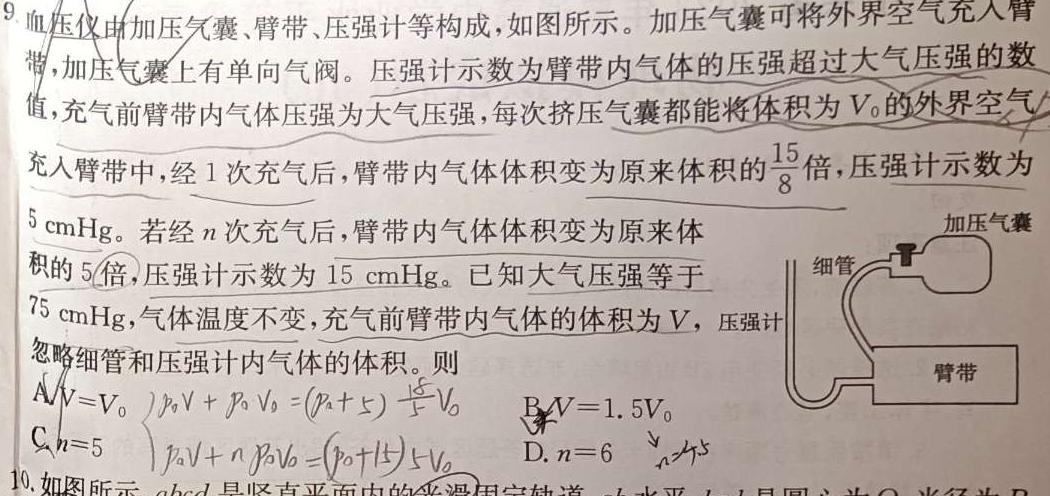 9. 血压仪由加压气囊、臂带、压强计等构成,如图所示。加压气囊可将外界空气充入臂
带,加压气囊上有单向气阀。压强计示数为臂带内气体的压强超过大气压强的数
值,充气前臂带内气体压强为大气压强,每次挤压气囊都能将体积为 V₀的外界空气
充入臂带中,经 1 次充气后,臂带内气体体积变为原来体积的15/8倍,压强计示数为
5 cmHg。若经 n 次充气后,臂带内气体体积变为原来体
积的 5 倍,压强计示数为 15 cmHg。已知大气压强等于
75 cmHg,气体温度不变,充气前臂带内气体的体积为 V,
忽略细管和压强计内气体的体积。则
加压气囊
细管
压强计
臂带
A. V=V₀
p₀V + p₀V₀ = (p₀+5) 18/5 V₀
B. V=1.5V₀
C. n=5
p₀V + n p₀V₀ = (p₀+15) 5V₀
D. n=6
10. 如图所示,abcd 是竖直平面内的光滑固定轨道